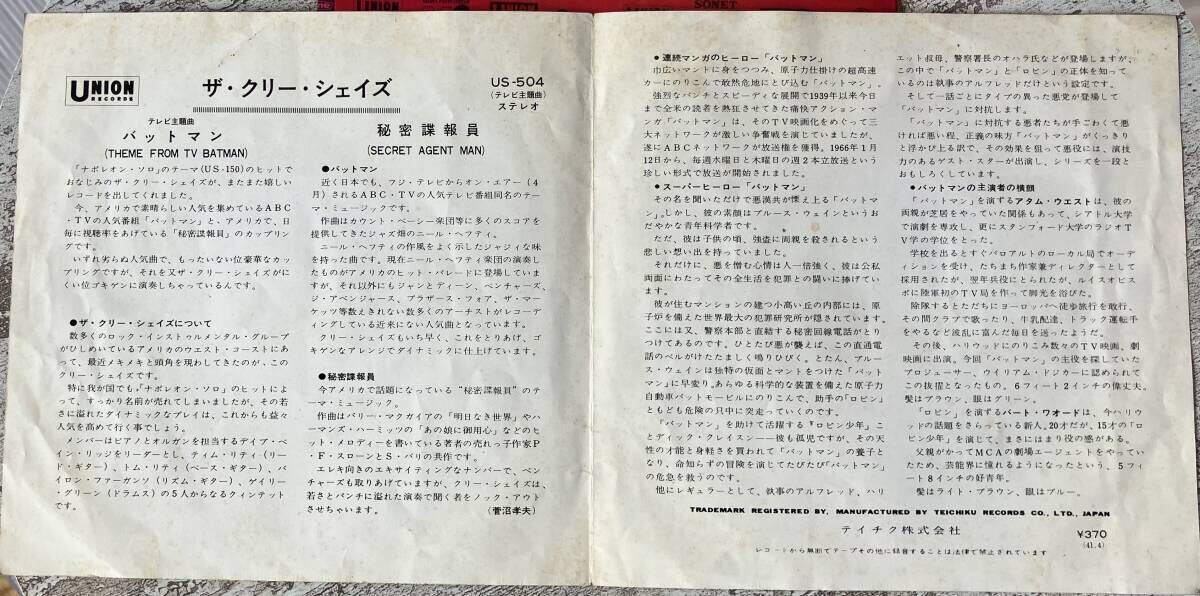 UNION
SONET
UNION
RECORDS
ザ・クリー・シェイズ
US-504
(テレビ主題曲)
ステレオ
テレビ主題曲
バットマン
(THEME FROM TV BATMAN)
秘密諜報員
(SECRET AGENT MAN)
「ナポレオン・ソロ」のテーマ(US-150)のヒットで
おなじみのザ・クリー・シェイズが、またまた嬉しい
レコードを出してくれました。
今、アメリカで素晴らしい人気を集めているABC
・TVの人気番組「バットマン」と、アメリカで、日
毎に視聴率をあげている「秘密諜報員」のカップリン
グです。
いずれ劣らぬ人気曲で、もったいない位豪華なカッ
プリングですが、それを又ザ・クリー・シェイズがに
くい位ゴキゲンに演奏しちゃっているんです。
●ザ・クリー・シェイズについて
数多くのロック・インストゥルメンタル・グループ
がひしめいているアメリカのウエスト・コーストにあ
って、最近メキメキと頭角を現わしてきたのが、この
クリー・シェイズです。
特に我が国でも、「ナポレオン・ソロ」のヒットによ
って、すっかり名前が売れてしまいましたが、その若
さに溢れたダイナミックなプレイは、これからも益々
人気を高めて行く事でしょう。
メンバーはピアノとオルガンを担当するデイブ・ペ
イン・リッジをリーダーとし、ティム・リティ(リー
ド・ギター)、トム・リティ(ベース・ギター)、バ
イロン・ファーガンソ(リズム・ギター)、ゲイリー
・グリーン(ドラムス)の5人からなるクィンテット
です。
●バットマン
近く日本でも、フジ・テレビからオン・エアー(4
月)されるABC・TVの人気テレビ番組同名のテー
マ・ミュージックです。
作曲はカウント・ベーシー楽団等に多くのスコアを
提供してきたジャズ畑のニール・ヘフティ。
ニール・ヘフティの作風をよく示したジャジィな味
を持った曲です。現在ニール・ヘフティ楽団の演奏し
たものがアメリカのヒット・パレードに登場していま
すが、それ以外にもジャンとディーン、ベンチャーズ、
ジ・アベンジャース、ブラザース・フォア、ザ・マー
ケッツ等数えきれない数多くのアーチストがレコーデ
ィングしている近来にない人気曲となっています。
クリー・シェイズもいち早く、これをとりあげ、ゴ
キゲンなアレンジでダイナミックに仕上げています。
●秘密諜報員
今アメリカで話題になっている“秘密諜報員”のテ
ーマ・ミュージック。
作曲はバリー・マクガイアの「明日なき世界」やハ
ーマンズ・ハーミッツの「あの娘に御用心」などのヒ
ット・メロディーを書いている著者の売れっ子作家P
・F・スローンとS・バリの共作です。
エレキ向きのエキサイティングなナンバーで、ベン
チャーズも取りあげていますが、クリー・シェイズは、
若さとパンチに溢れた演奏で聞く者をノック・アウト
させちゃいます。
(菅沼孝夫)
●連続マンガのヒーロー「バットマン」
巾広いマントに身をつつみ、原子力仕掛けの超高速
カーにのりこんで敢然危地にとび込む「バットマン」。
強烈なパンチとスピーディな展開で1939年以来今日
まで全米の読者を熱狂させてきた痛快アクション・マ
ンガ「バットマン」は、そのTV映画化をめぐって三
大ネットワークが激しい争奪戦を演じていましたが、
遂にABCネットワークが放送権を獲得。1966年1月
12日から、毎週水曜日と木曜日の週2本立放送という
珍しい形式で放送が開始されました。
●スーパーヒーロー「バットマン」
その名を聞いただけで悪漢共が慄え上る「バットマ
ン」。しかし、彼の素顔はブルース・ウェインというお
だやかな青年科学者です。
ただ、彼は子供の頃、強盗に両親を殺されるという
悲しい想い出を持っていました。
それだけに、悪を憎む心情は人一倍強く、彼は公私
両面にわたってその全生活を犯罪との闘いに捧げてい
ます。
彼が住むマンションの建つ小高い丘の内部には、原
子炉を備えた世界最大の犯罪研究所が隠されています。
ここには又、警察本部と直結する秘密回線電話がとり
つけてあるのです。ひとたび悪が襲えば、この直通電
話のベルがけたたましく鳴りひびく。とたん、ブルー
ス・ウェインは独特の仮面とマントをつけた「バット
マン」に早変り。あらゆる科学的な装置を備えた原子力
自動車バットモービルにのりこんで、助手の「ロビン」
ともども危険の只中に突走っていくのです。
「バットマン」を助けて活躍する「ロビン少年」こ
とディック・クレイスン――彼も孤児ですが、その天
性の才能と身軽さを買われて「バットマン」の養子と
なり、命知らずの冒険を演じてたびたび「バットマン」
の危急を救うのです。
他にレギュラーとして、執事のアルフレッド、ハリ
エット叔母、警察署長のオハラ氏などが登場しますが、
この中で「バットマン」と「ロビン」の正体を知って
いるのは執事のアルフレッドだけという設定です。
そして一話ごとにタイプの異った悪党が登場して
「バットマン」に対抗します。
「バットマン」に対抗する悪者たちが手ごわくて悪
ければ悪い程、正義の味方「バットマン」がくっきり
と浮かび上る訳で、その効果を狙って悪役には、演技
力のあるゲスト・スターが出演し、シリーズを一段と
おもしろくしています。
●バットマンの主演者の横顔
「バットマン」を演ずるアタム・ウエストは、彼の
両親が芝居をやっていた関係もあって、シアトル大学
で演劇を専攻し、更にスタンフォード大学のラジオT
V学の学位をとった。
学校を出るとすぐパロアルトのローカル局でオーデ
ィションを受け、たちまち作家兼ディレクターとして
採用されたが、翌年兵役にとられたが、ルイスオビス
ポに陸軍初のTV局を作って脚光を浴びた。
除隊するとただちにヨーロッパへ徒歩旅行を敢行、
その間グラブで歌ったり、牛乳配達、トラック運転手
をやるなど波乱に富んだ毎日を送ったようだ。
その後、ハリウッドにのりこみ数々のTV映画、劇
映画に出演。今回「バットマン」の主役を探していた
プロジューサー、ウイリアム・ドジカーに認められて
この抜擢となったもの。6フィート2インチの偉丈夫。
髪はブラウン、眼はグリーン。
「ロビン」を演ずるバート・ワオードは、今ハリウ
ッドの話題をさらっている新人。20才だが、15才の「ロ
ビン少年」を演じて、まさにはまり役の感がある。
父親がかってMCAの劇場エージェントをやってい
たため、芸能界に憧れるようになったという、5フィ
ート8インチの好青年。
髪はライト・ブラウン、眼はブルー。
TRADEMARK REGISTERED BY, MANUFACTURED BY TEICHIKU RECORDS CO., LTD., JAPAN
テイチク株式会社
¥370
(41.4)
レコードから無断でテープその他に録音することは法律で禁止されています